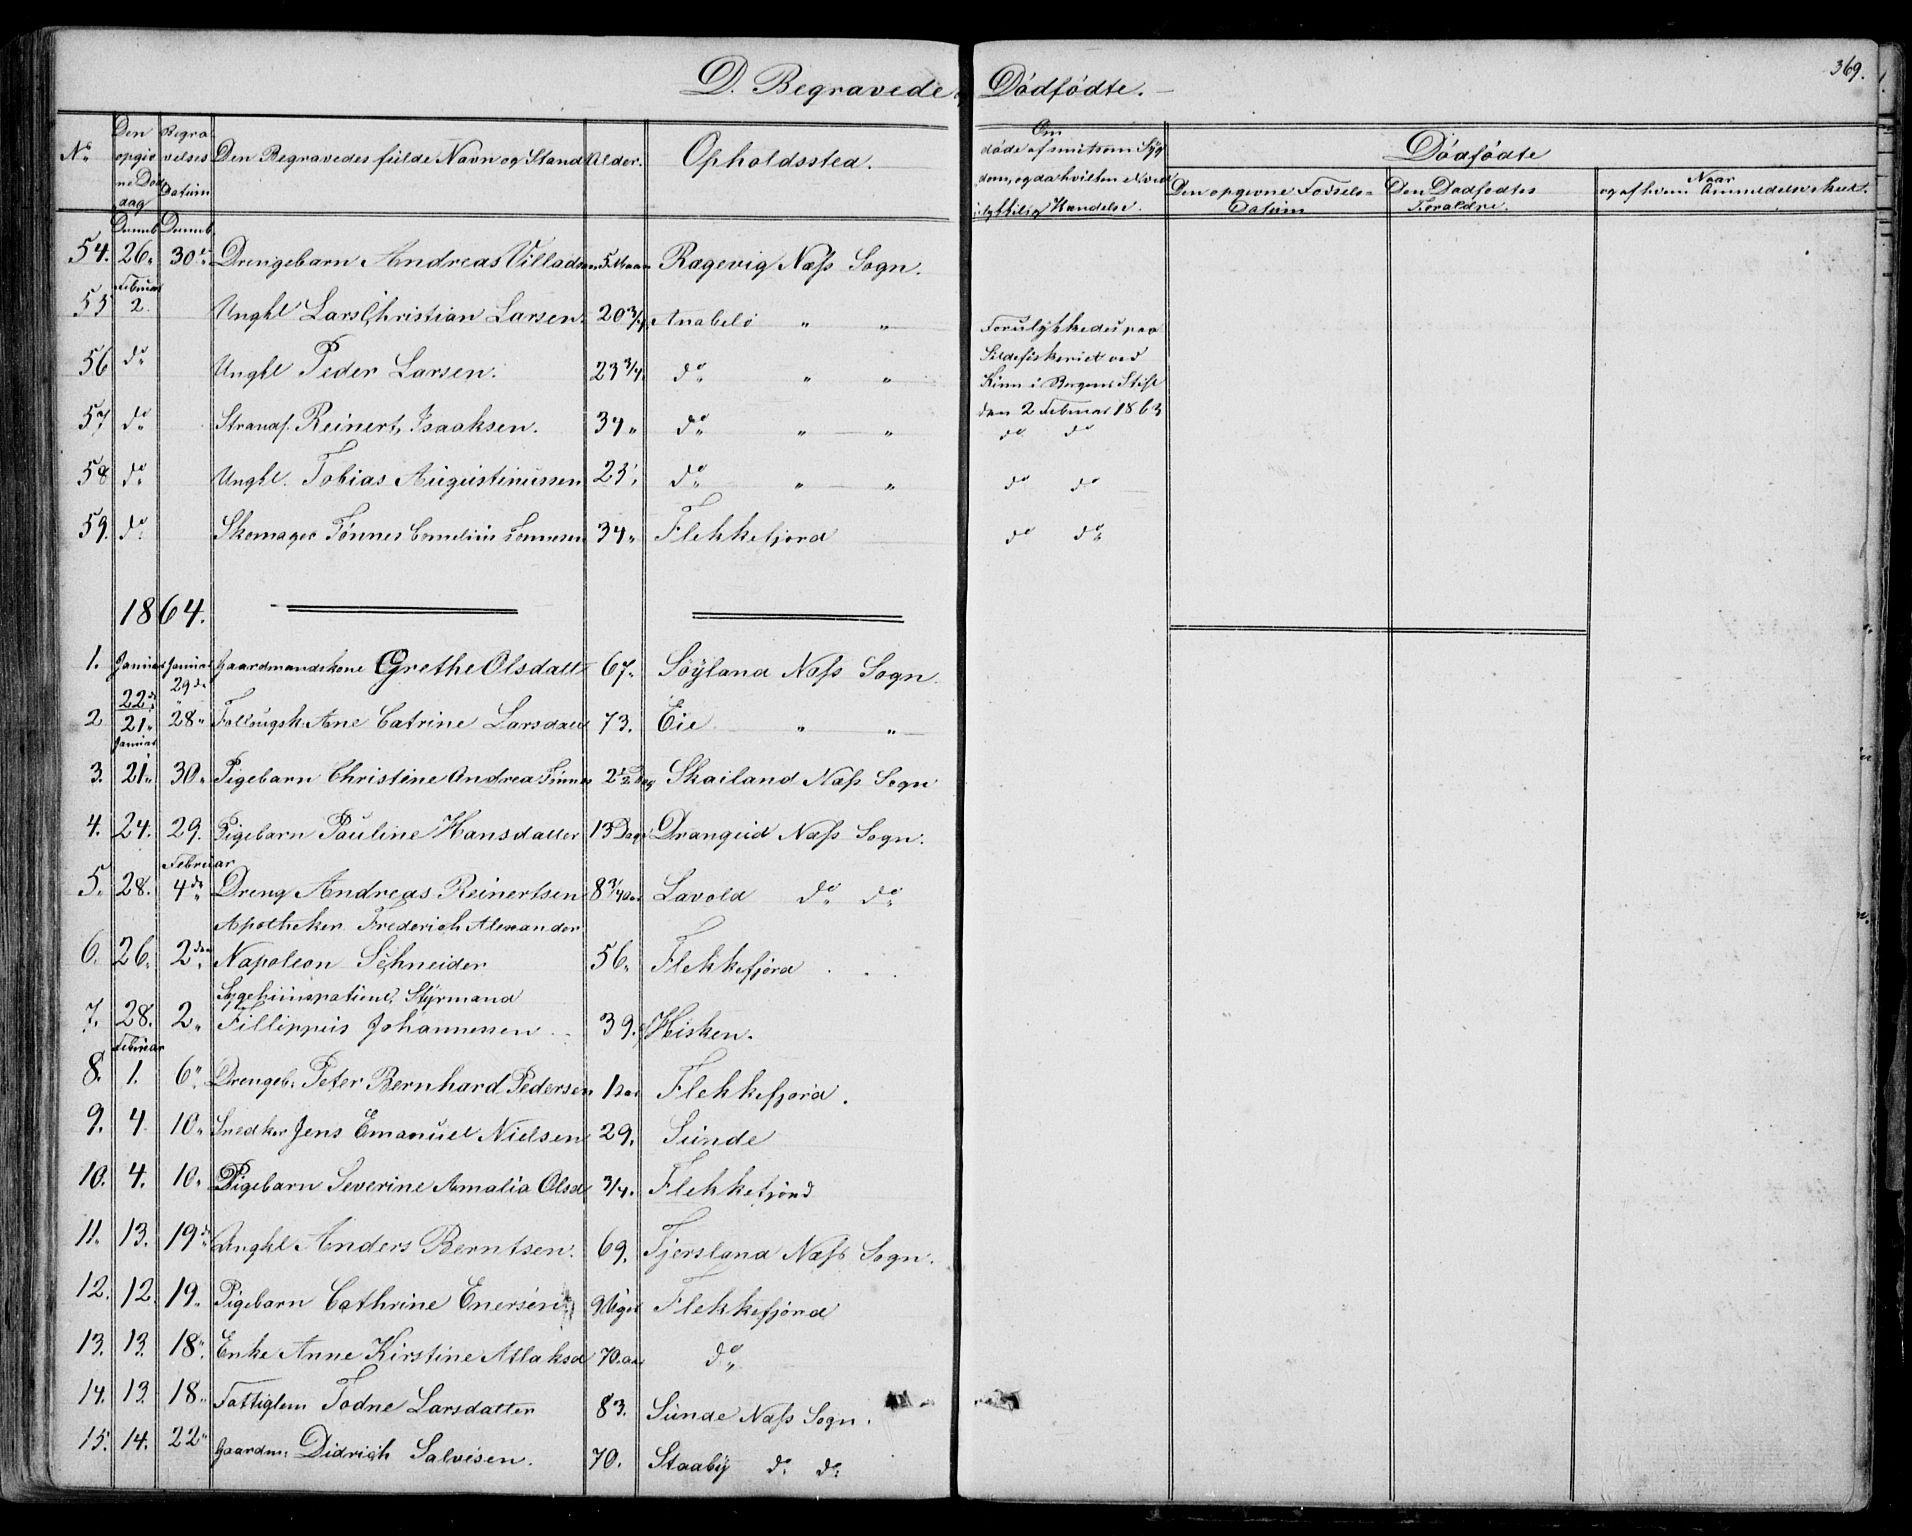 369.
D. Begravede, Dødfødte.
No. Den opgivne Døds dag Begravelses Datum Den Begravedes fulde Navn og Stand Alder. Opholdssted. Om døde af smitsom Syg Dødfødte
dom, og da hvilken Kundelse. Den opgivne Fødsels= Datum Den Dødfødtes Forældre. Naar og af hvem Anmeldelse skeet.
54. 26. 30te Drengebarn Andreas Villadsen 5 Maan Ragevig Næss Sogn.
Februar
55 2. Unghl Lars Christian Larsen. 20 3/4 Anabelø " " Forulykkedes paa
56 do Unghl Peder Larsen. 23 3/4. do " " Sildefiskeriet ved
Kinn i Bergens Stift
den 2 Februar 1863
57 do Strands. Reinert Isaaksen. 34 " do " " do do
58 do Unghl. Tobias Augustinussen 25 do " " do do
59. do Skomager Tønnes Cornelius Tønnesen 34 " Flekkefjord do do
1864.
1. Januar 22de Januar 29de Gaardmandskone Grethe Olsdatt 67 " Søyland Næss Sogn.
2 21 " 28 " Ane Catrine Larsdatt 73. Eie " "
Januar
3. 21 " 30 " Pigebarn Christine Andrea 2 1/2 Dag Skailand Næss Sogn
4. 24. 29. Pigebarn Pauline Hansdatter 13 Dage Drangeid Næss Sogn.
Februar
5. 28. 4de Dreng Andreas Reinertsen 8 3/4 Aar Lavold do do
Apotheker Frederich Alexander
6. 26. 2den Napoleon Schneider 56 " Flekkefjord
Sygehuuspatient, Styrmand
7. 28. 2 " Fillippus Johannessen 39. Hisken.
Februar
8. 1. 6 " Drengeb. Peter Bernhard Pedersen 1 Aar Flekkefjord.
9. 4. 10 " Snedker Jens Emanuel Nielsen 29. Sunde
10. 4. 10 " Pigebarn Severine Amalia Olsd 3/4. Flekkefjord
11. 13. 19de Unghl Anders Berntsen. 69. Fjersland Næss Sogn.
12. 12. 19 " Pigebarn Cathrine Enersen 9 Uger Flekkefjord
13. 13. 18 " Enke Anne Kirstine Atlaksd 70. Aar do
14. 13. 18 " Fattiglem Todne Larsdatter 83. Sunde Næss Sogn.
15. 14. 22 " Gaardm. Didrich Salvesen. 70. Staaby do do